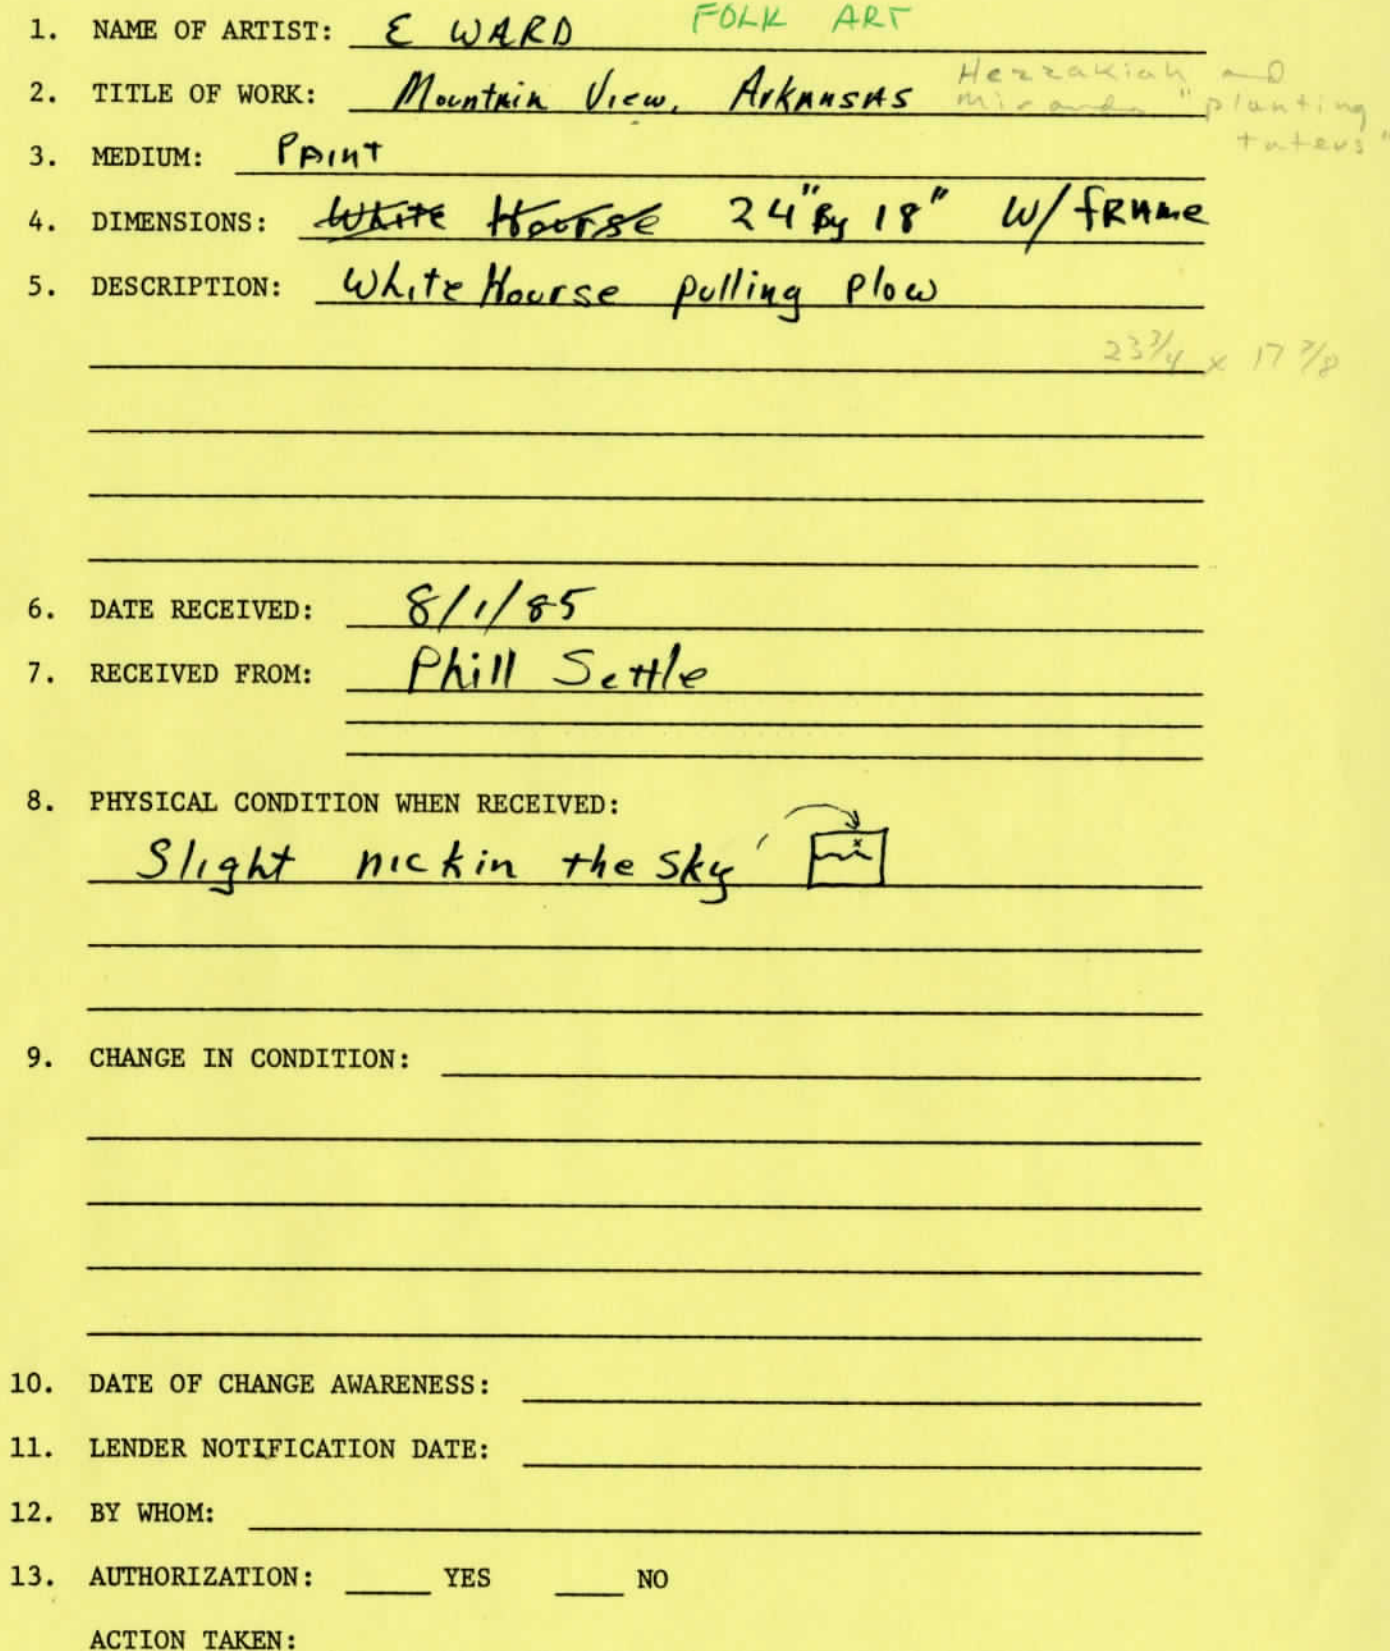 1. NAME OF ARTIST: E WARD FOLK ART
2. TITLE OF WORK: Mountain View, Arkansas Hezzakiah and
Miranda "planting
taters"
3. MEDIUM: PAINT
4. DIMENSIONS: White Hourse 24" By 18" W/ FRAme
5. DESCRIPTION: White Hourse pulling plow
23 3/4 x 17 7/8
6. DATE RECEIVED: 8/1/85
7. RECEIVED FROM: Phill Settle
8. PHYSICAL CONDITION WHEN RECEIVED:
Slight nick in the sky
9. CHANGE IN CONDITION:
10. DATE OF CHANGE AWARENESS:
11. LENDER NOTIFICATION DATE:
12. BY WHOM:
13. AUTHORIZATION: YES NO
ACTION TAKEN: